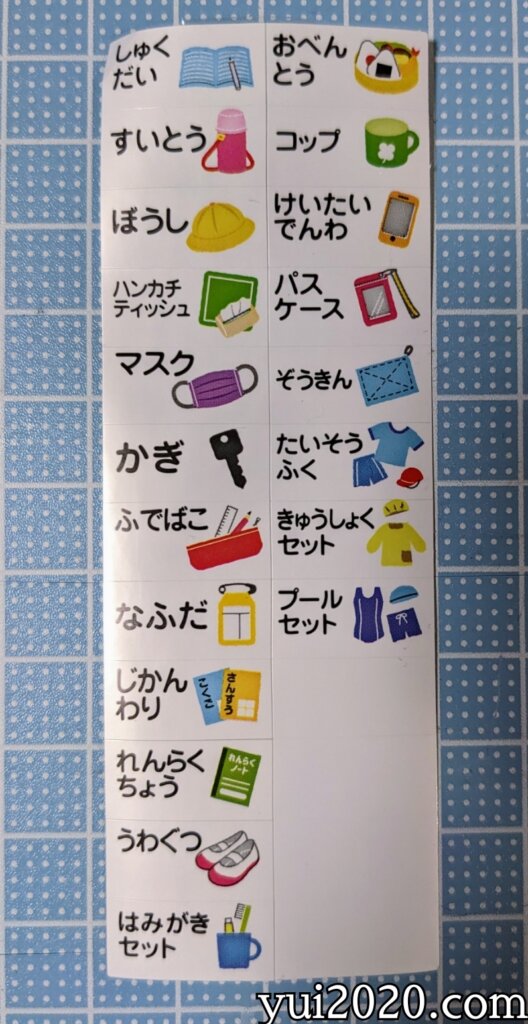 しゅく
だい
すいとう
ぼうし
ハンカチ
ティッシュ
マスク
かぎ
ふでばこ
なふだ
じかん
わり
こくご
さんすう
れんらく
ちょう
れんらく
ノート
うわぐつ
はみがき
セット
おべん
とう
コップ
けいたい
でんわ
パス
ケース
ぞうきん
たいそう
ふく
きゅうしょく
セット
プール
セット
yui2020.com